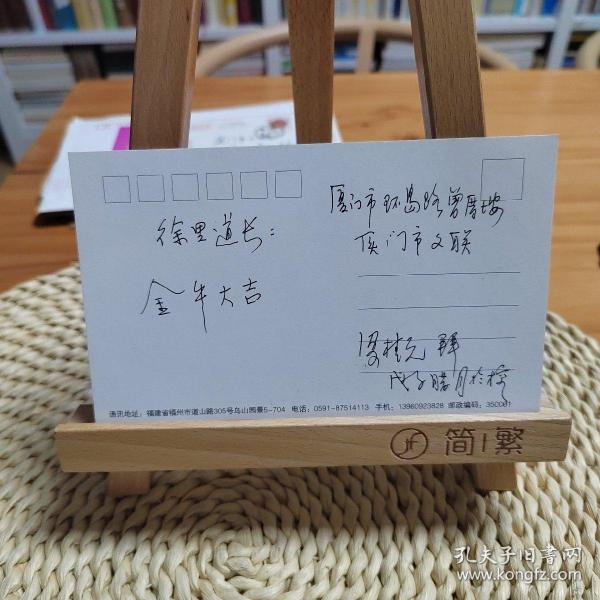 徐里道长：
金牛大吉
厦门市环岛路曾厝垵
厦门市文联
桂元 拜
戊子腊月于榕
通讯地址：福建省福州市道山路305号乌山园景5-704 电话：0591-87514113 手机：13960923828 邮政编码：350001
jf 简|繁
孔夫子旧书网
www.kongfz.com